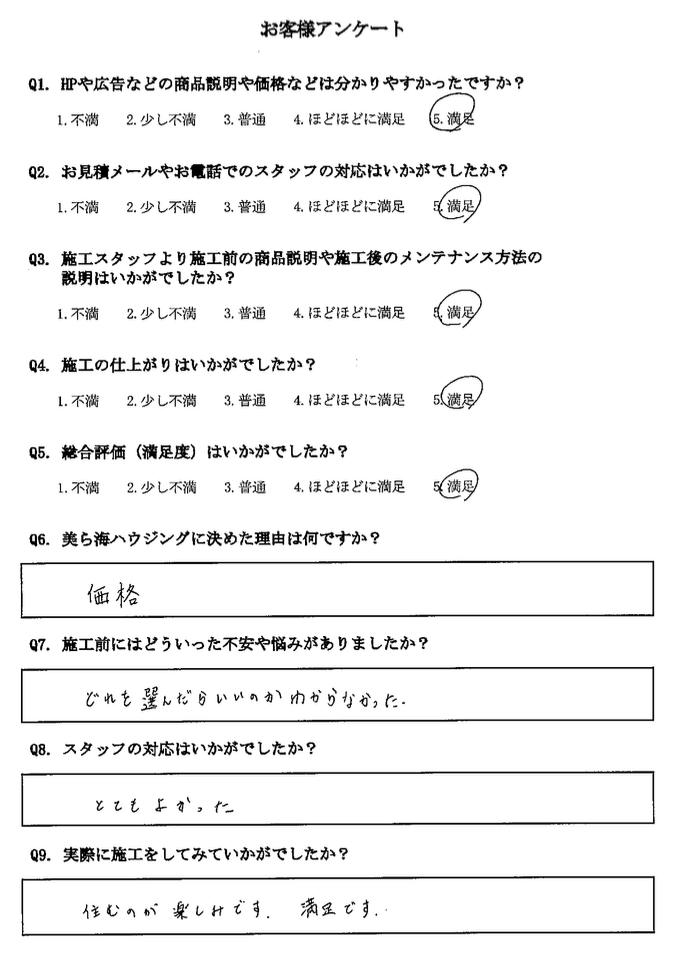 お客様アンケート
Q1. HPや広告などの商品説明や価格などは分かりやすかったですか？
1.不満 2.少し不満 3.普通 4.ほどほどに満足 5.満足
Q2. お見積メールやお電話でのスタッフの対応はいかがでしたか？
1.不満 2.少し不満 3.普通 4.ほどほどに満足 5.満足
Q3. 施工スタッフより施工前の商品説明や施工後のメンテナンス方法の
説明はいかがでしたか？
1.不満 2.少し不満 3.普通 4.ほどほどに満足 5.満足
Q4. 施工の仕上がりはいかがでしたか？
1.不満 2.少し不満 3.普通 4.ほどほどに満足 5.満足
Q5. 総合評価（満足度）はいかがでしたか？
1.不満 2.少し不満 3.普通 4.ほどほどに満足 5.満足
Q6. 美ら海ハウジングに決めた理由は何ですか？
価格
Q7. 施工前にはどういった不安や悩みがありましたか？
どれを選んだらいいのかわからなかった.
Q8. スタッフの対応はいかがでしたか？
とてもよかった
Q9. 実際に施工をしてみていかがでしたか？
住むのが楽しみです. 満足です.